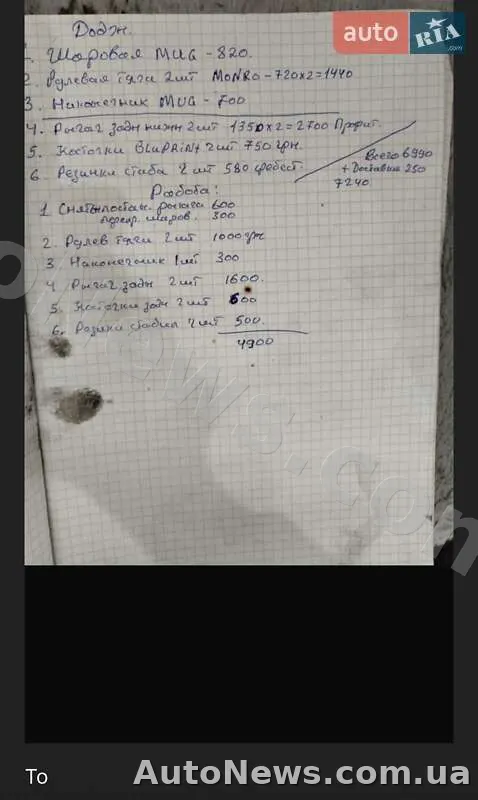 auto RIA
.com
Додж.
1. Шаровая MUG - 820.
2. Рулевая тяги 2 шт MONRO - 720x2=1440
3. Наконечник MUG - 700
4. Рычаг задн нижн 2 шт 1350x2=2700 Профит.
5. Косточки BluPRiNt 2 шт 750 грн.
6. Резинки стаба 2 шт 580 фебест.
Всего 6990
+ Доставка 250
7240
Работа:
1 Снять/постав. рычага 600
перепр. шаров. 300
2. Рулев тяги 2 шт 1000 грн
3 Наконечник 1 шт 300
4 Рычаг задн 2 шт 1600.
5. Косточки задн 2 шт 600
6. Резинки стабил 2 шт 500.
4900
To
AutoNews.com.ua